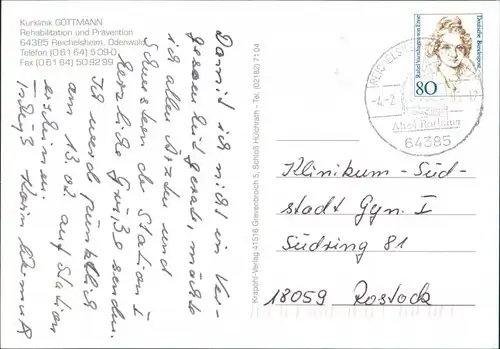 Kurklinik GÖTTMANN
Rehabilitation und Prävention
64385 Reichelsheim, Odenwald
Telefon (0 61 64) 5 09-0
Fax (0 61 64) 50 92 99
Damit ich nicht in Ver-
gessenheit gerate, möchte
ich allen Ärzten und
Schwestern der Station I
herzliche Grüße senden.
Ich werde pünktlich
am 13.02. auf Station
erscheinen.
Gruß Karin
Krapohl-Verlag 41516 Grevenbroich 5, Schloß Hülchrath - Tel. (02182) 71 04
REICHELSHEIM
-4.-2.
Altes Rathaus
64385
Rahel Varnhagen von Ense
Deutsche Bundespost
80
Klinikum-Süd-
stadt Gyn. I
Südring 81
18059 Rostock